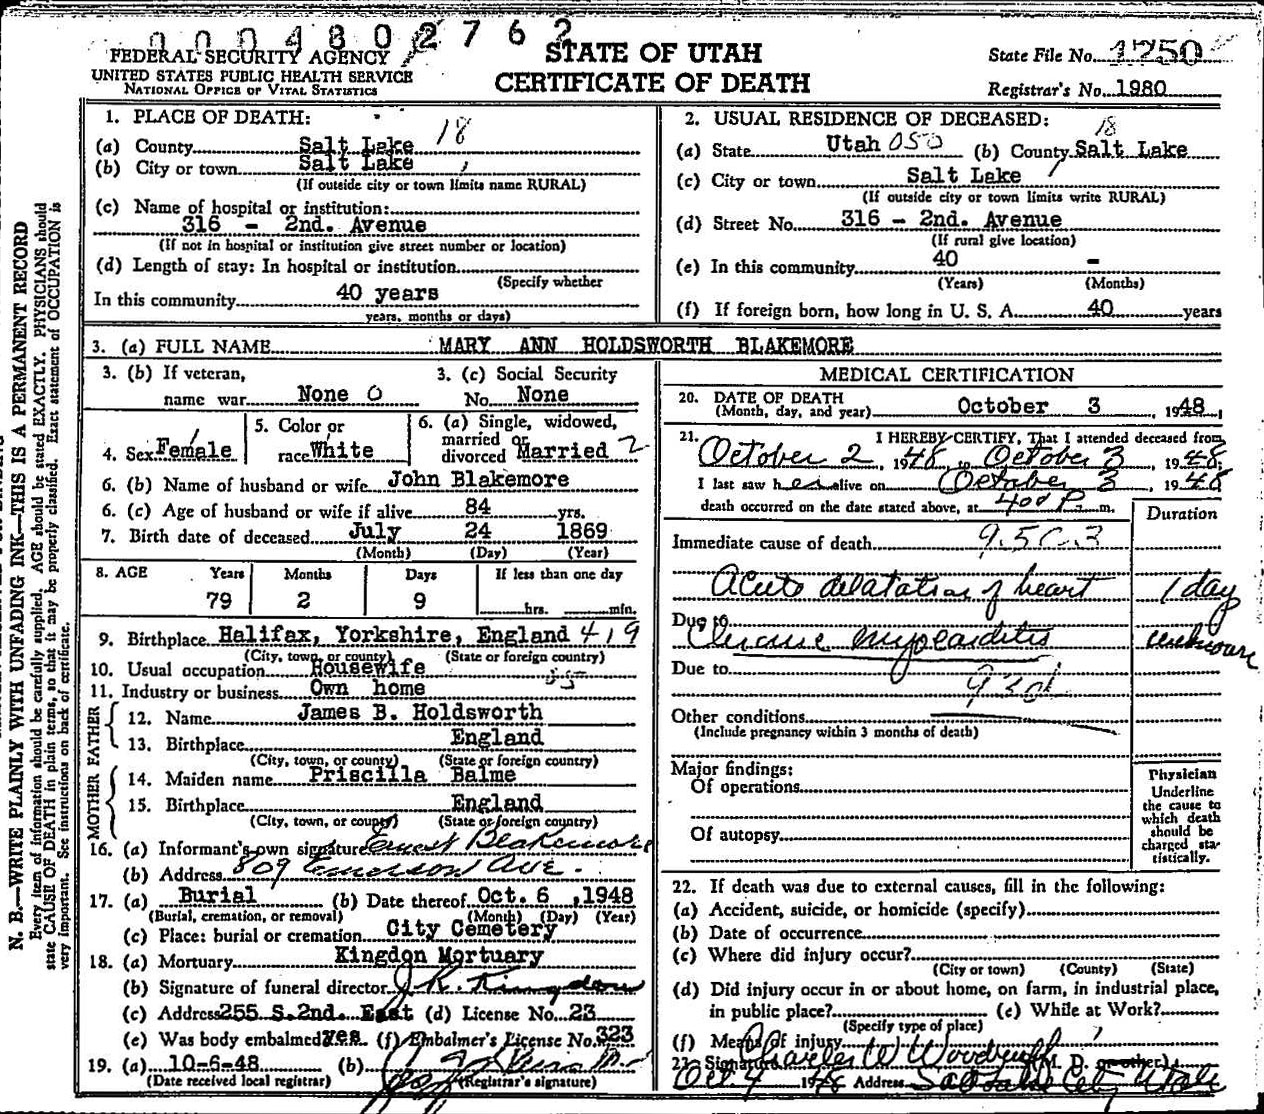 0004802762
FEDERAL SECURITY AGENCY
UNITED STATES PUBLIC HEALTH SERVICE
NATIONAL OFFICE OF VITAL STATISTICS
STATE OF UTAH
CERTIFICATE OF DEATH
State File No. 1250
Registrar's No. 1980
N. B.—WRITE PLAINLY WITH UNFADING INK—THIS IS A PERMANENT RECORD
Every item of information should be carefully supplied. AGE should be stated EXACTLY. PHYSICIANS should
state CAUSE OF DEATH in plain terms, so that it may be properly classified. Exact statement of OCCUPATION is
very important. See instructions on back of certificate.
1. PLACE OF DEATH:
(a) County Salt Lake 18
(b) City or town Salt Lake
(If outside city or town limits name RURAL)
(c) Name of hospital or institution:
316 - 2nd. Avenue
(If not in hospital or institution give street number or location)
(d) Length of stay: In hospital or institution
(Specify whether
In this community 40 years
years, months or days)
2. USUAL RESIDENCE OF DECEASED:
(a) State Utah 050 (b) County Salt Lake 18
(c) City or town Salt Lake
(If outside city or town limits write RURAL)
(d) Street No. 316 - 2nd. Avenue
(If rural give location)
(e) In this community 40 -
(Years) (Months)
(f) If foreign born, how long in U. S. A. 40 years
3. (a) FULL NAME MARY ANN HOLDSWORTH BLAKEMORE
3. (b) If veteran,
name war None 0
3. (c) Social Security
No. None
4. Sex Female 1
5. Color or
race White
6. (a) Single, widowed,
married or
divorced Married 2
6. (b) Name of husband or wife John Blakemore
6. (c) Age of husband or wife if alive 84 yrs.
7. Birth date of deceased July 24 1869
(Month) (Day) (Year)
8. AGE Years Months Days If less than one day
79 2 9 hrs. min.
9. Birthplace Halifax, Yorkshire, England 419
(City, town, or county) (State or foreign country)
10. Usual occupation Housewife
11. Industry or business Own home
FATHER
12. Name James B. Holdsworth
13. Birthplace England
(City, town, or county) (State or foreign country)
MOTHER
14. Maiden name Priscilla Balme
15. Birthplace England
(City, town, or county) (State or foreign country)
16. (a) Informant's own signature Ernest Blakemore
(b) Address 809 Emerson Ave.
17. (a) Burial (b) Date thereof Oct. 6, 1948
(Burial, cremation, or removal) (Month) (Day) (Year)
(c) Place: burial or cremation City Cemetery
18. (a) Mortuary Kingdon Mortuary
(b) Signature of funeral director J. R. Kingdon
(c) Address 255 S. 2nd. East (d) License No. 23
(e) Was body embalmed yes. (f) Embalmer's License No. 323
19. (a) 10-6-48 (b)
(Date received local registrar) (Registrar's signature)
MEDICAL CERTIFICATION
20. DATE OF DEATH
(Month, day, and year) October 3, 1948.
21. I HEREBY CERTIFY, That I attended deceased from
October 2, 1948, to October 3, 1948.
I last saw her alive on October 3 1948
death occurred on the date stated above, at 400 P. m.
Duration
Immediate cause of death 95C.3
Acute dilatation of heart 1 day
Due to
Chronic myocarditis unknown
Due to
93d
Other conditions
(Include pregnancy within 3 months of death)
Major findings:
Of operations
Of autopsy
Physician
Underline
the cause to
which death
should be
charged sta-
tistically.
22. If death was due to external causes, fill in the following:
(a) Accident, suicide, or homicide (specify)
(b) Date of occurrence
(c) Where did injury occur?
(City or town) (County) (State)
(d) Did injury occur in or about home, on farm, in industrial place,
in public place? (e) While at Work?
(Specify type of place)
(f) Means of injury
23. Signature Charles W Woodruff (M. D. or other)
Oct. 4 1948 Address Salt Lake City Utah